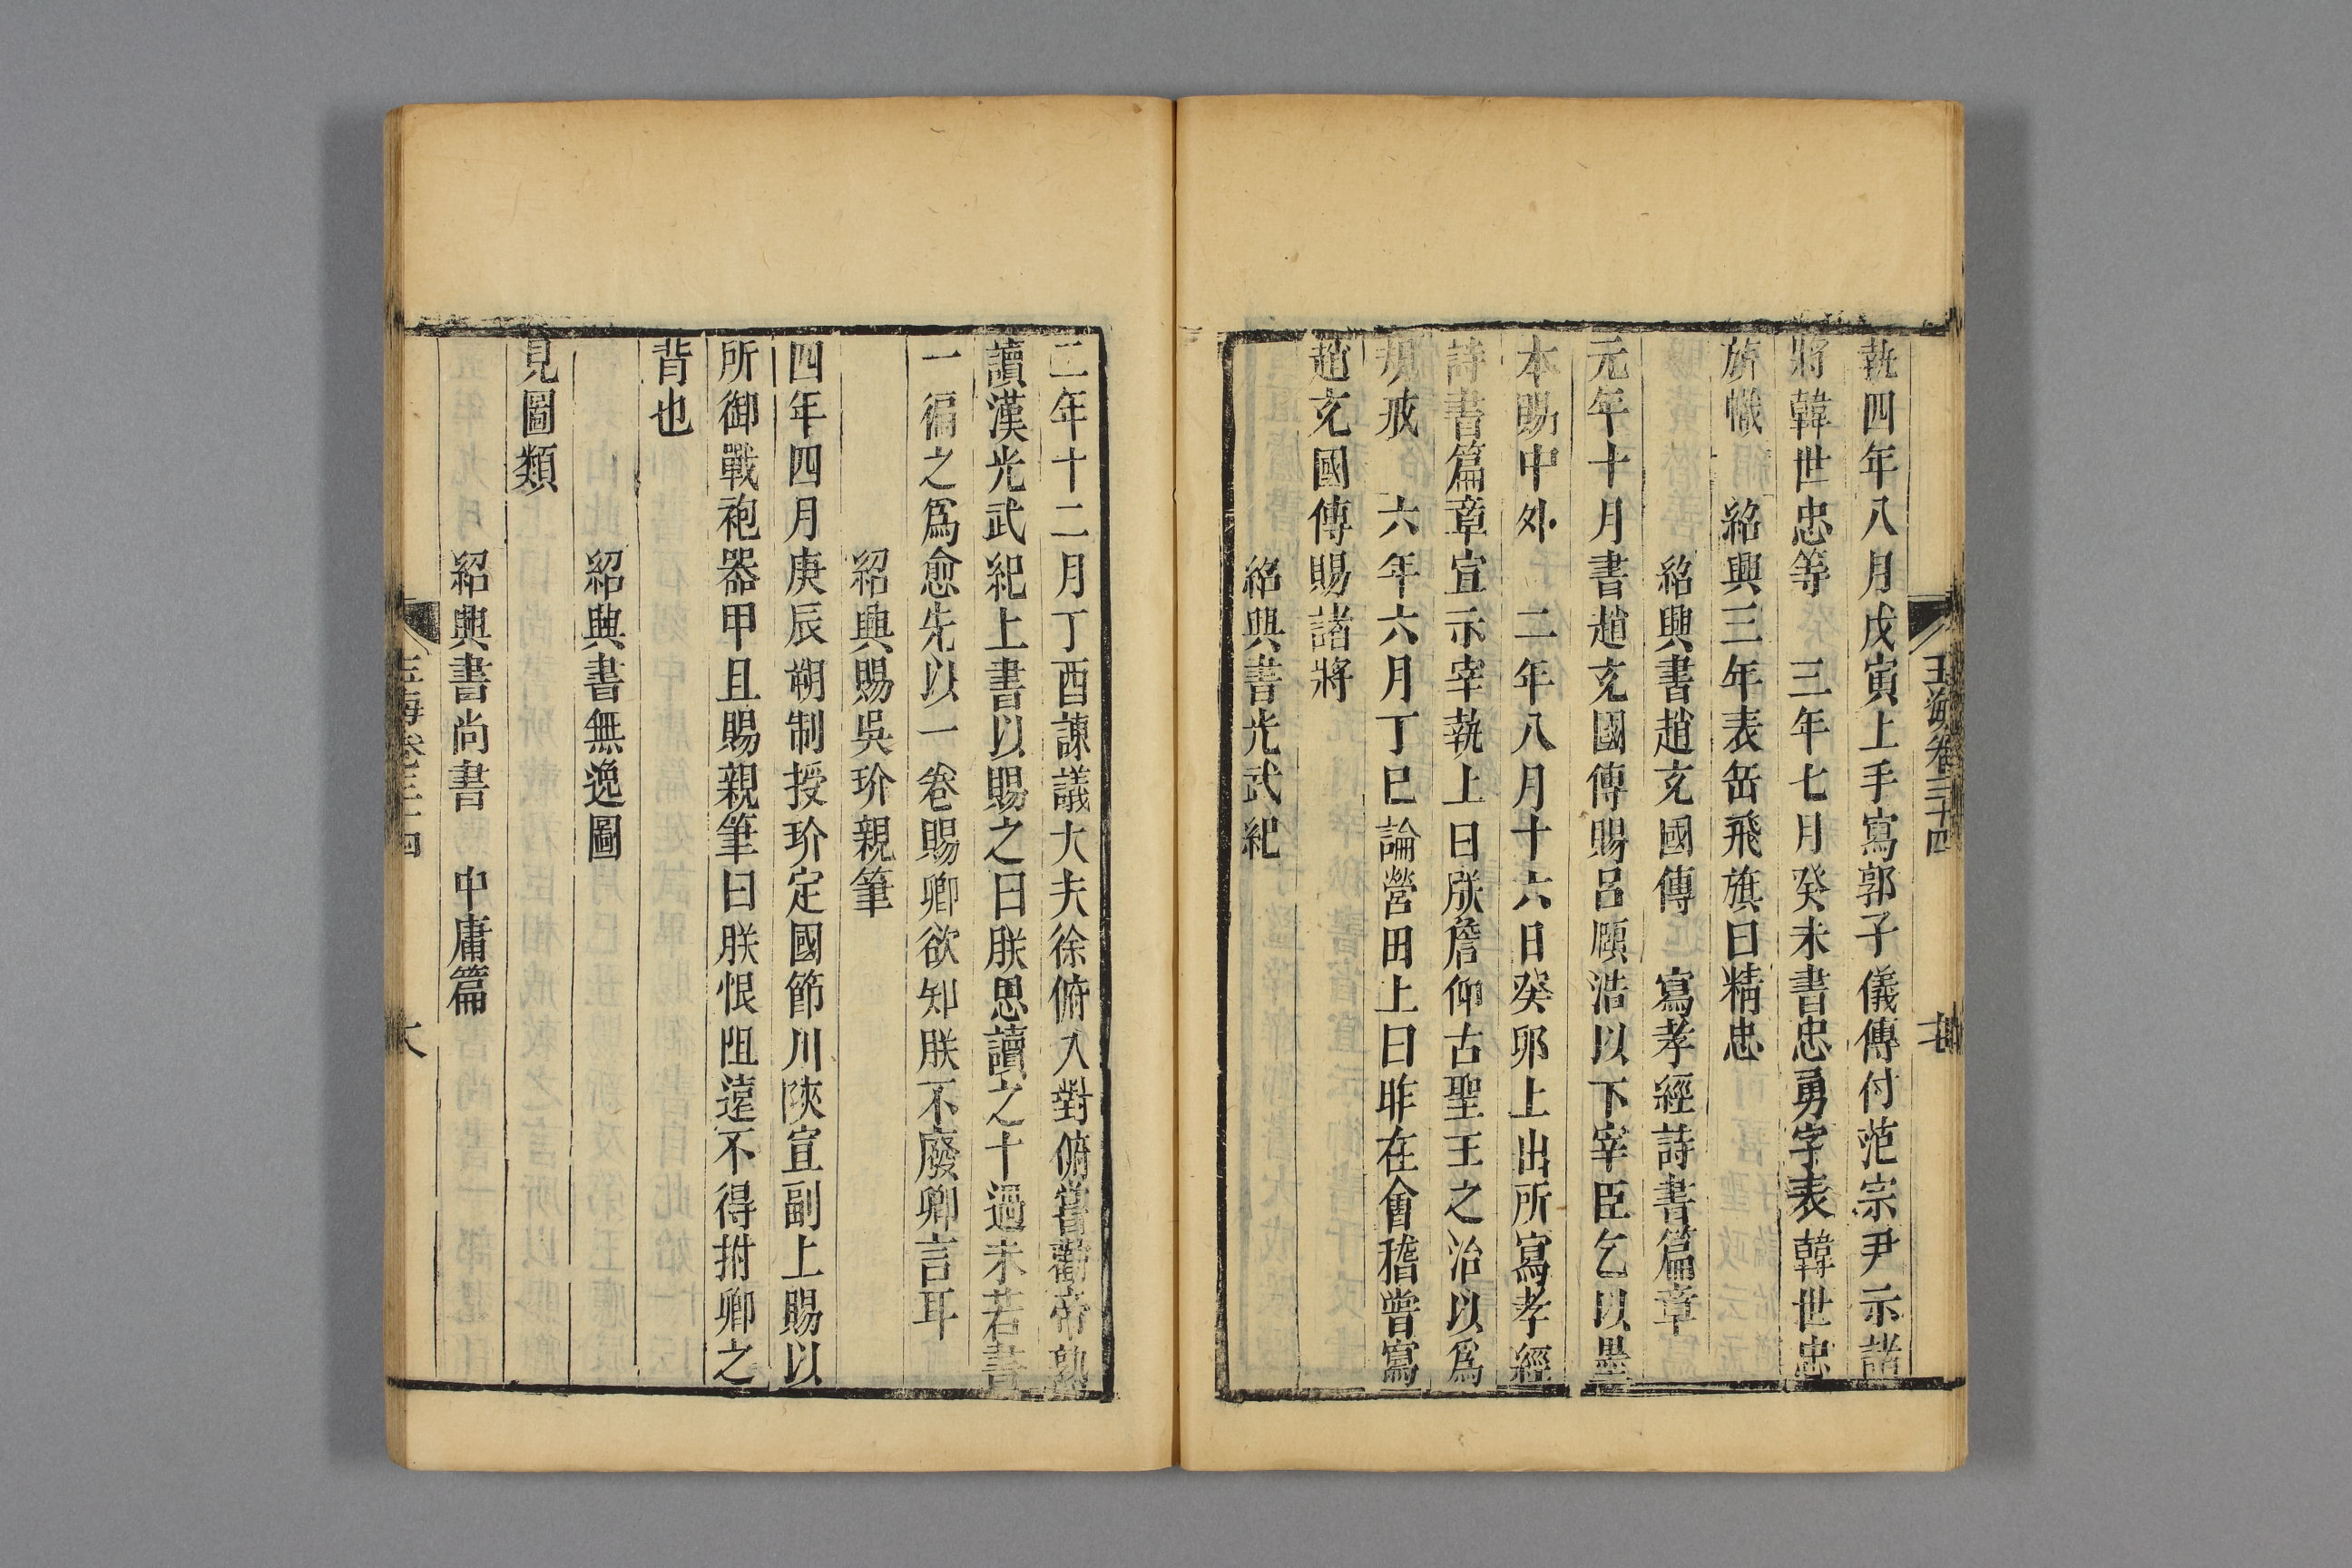 玉海卷三十四
執四年八月戊寅上手寫郭子儀傳付范宗尹示諸
將韓世忠等　三年七月癸未書忠勇字表韓世忠
旂幟　紹興三年表岳飛旗曰精忠
紹興書趙充國傳　寫孝經詩書篇章
元年十月書趙充國傳賜呂頤浩以下宰臣乞以墨
本賜中外　二年八月十六日癸卯上出所寫孝經
詩書篇章宣示宰執上曰朕詹仰古聖王之治以爲
規戒　六年六月丁巳論營田上曰昨在會稽嘗寫
趙充國傳賜諸將
紹興書光武紀
二年十二月丁酉諫議大夫徐俯入對俯嘗勸帝熟
讀漢光武紀上書以賜之曰朕思讀之十過未若書
一徧之爲愈先以一卷賜卿欲知朕不廢卿言耳
紹興賜吳玠親筆
四年四月庚辰朔制授玠定國節川陝宣副上賜以
所御戰袍器甲且賜親筆曰朕恨阻遠不得拊卿之
背也
紹興書無逸圖
見圖類
紹興書尚書　中庸篇
玉海卷三十四